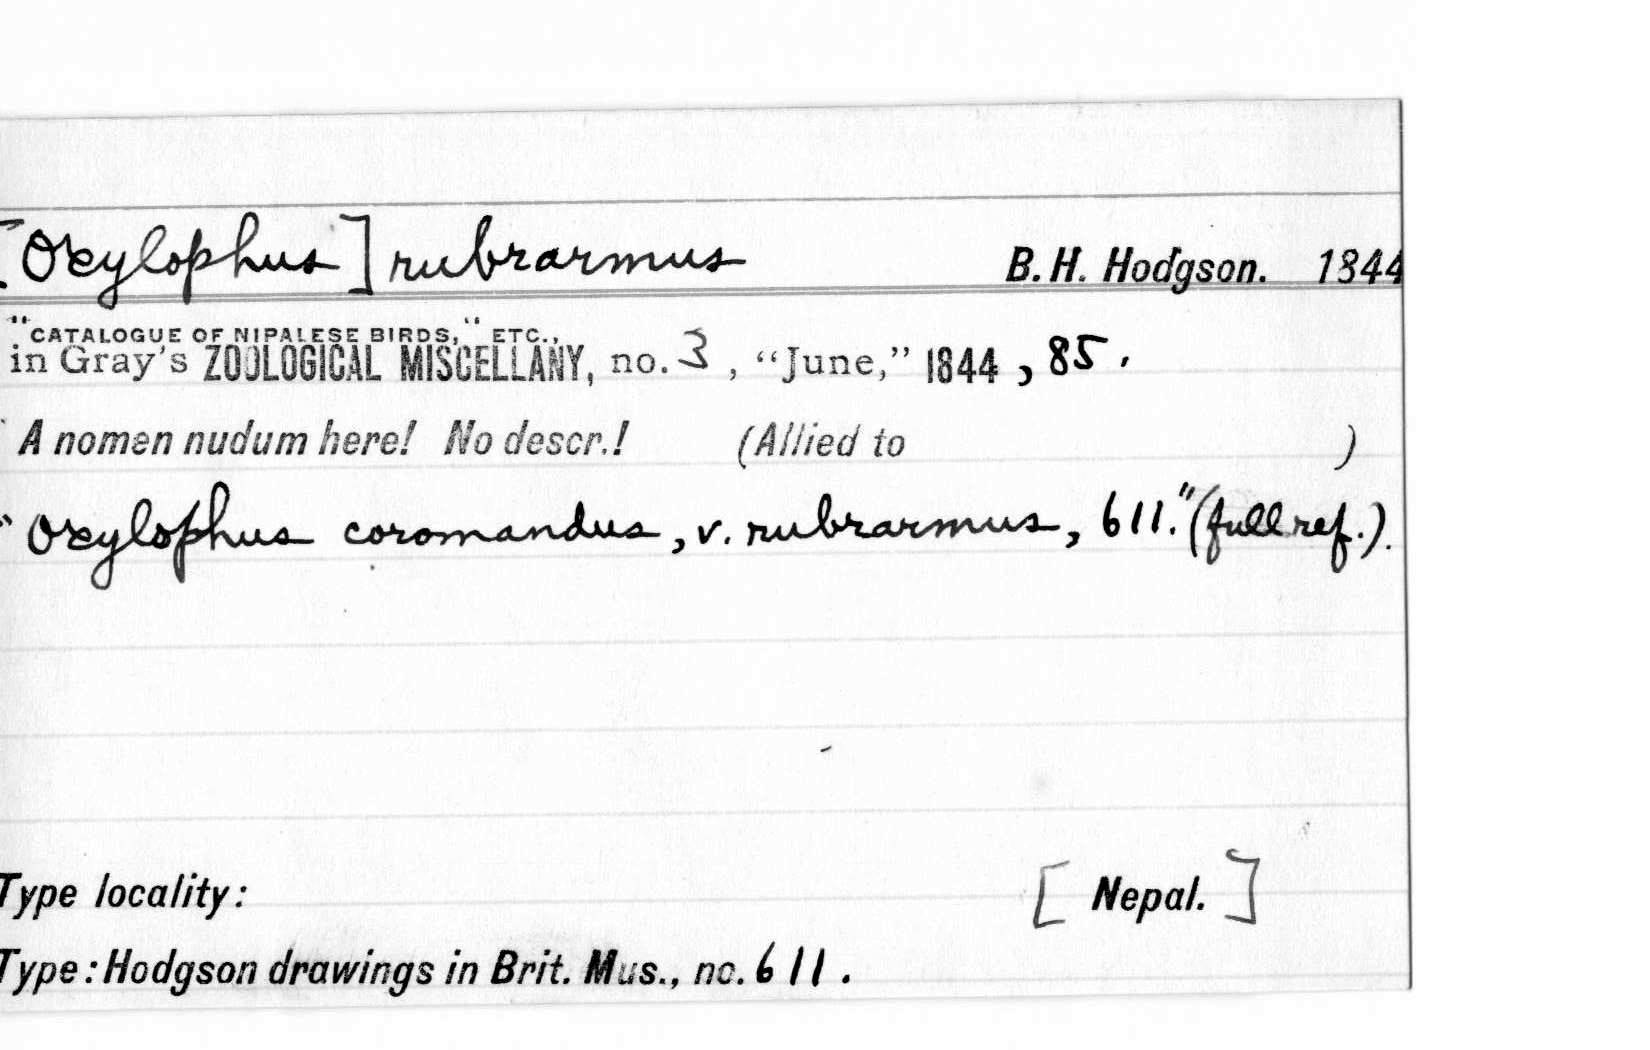 [Oxylophus] rubrarmus B. H. Hodgson. 1844
"CATALOGUE OF NIPALESE BIRDS," ETC.,
in Gray's ZOOLOGICAL MISCELLANY, no. 3, "June," 1844, 85.
A nomen nudum here! No descr.! (Allied to )
"Oxylophus coromandus, v. rubrarmus, 611." (full ref.).
Type locality: [Nepal.]
Type: Hodgson drawings in Brit. Mus., no. 611.